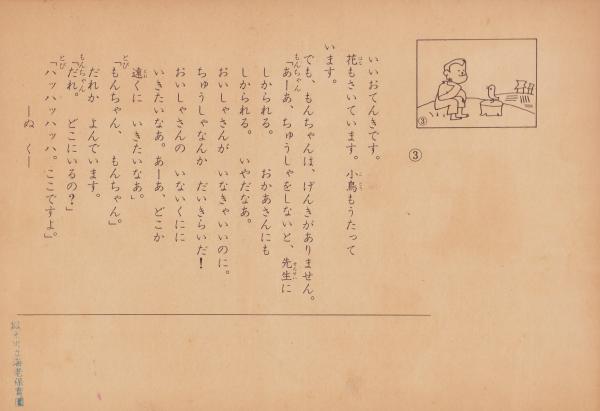 ③
③
いいおてんきです。
花もさいています。小鳥もうたって
います。
でも、もんちゃんは、げんきがありません。
もんちゃん
「あーあ、ちゅうしゃをしないと、先生に
しかられる。おかあさんにも
しかられる。いやだなあ。
おいしゃさんが いなきゃいいのに。
ちゅうしゃなんか だいきらいだ！
おいしゃさんの いないくにに
いきたいなあ。あーあ、どこか
遠くに いきたいなあ」
とび
「もんちゃん、もんちゃん」。
だれか よんでいます。
もんちゃん
「だれ。 どこにいるの？」
とび
「ハッハッハッハ。ここですよ」。
―ぬく―
海老保育園